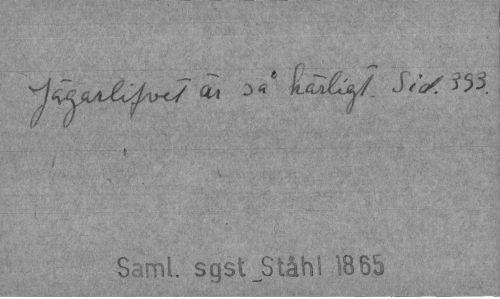 Jägarlifvet är så härligt. Sid. 393.
Saml. sgst Ståhl 1865